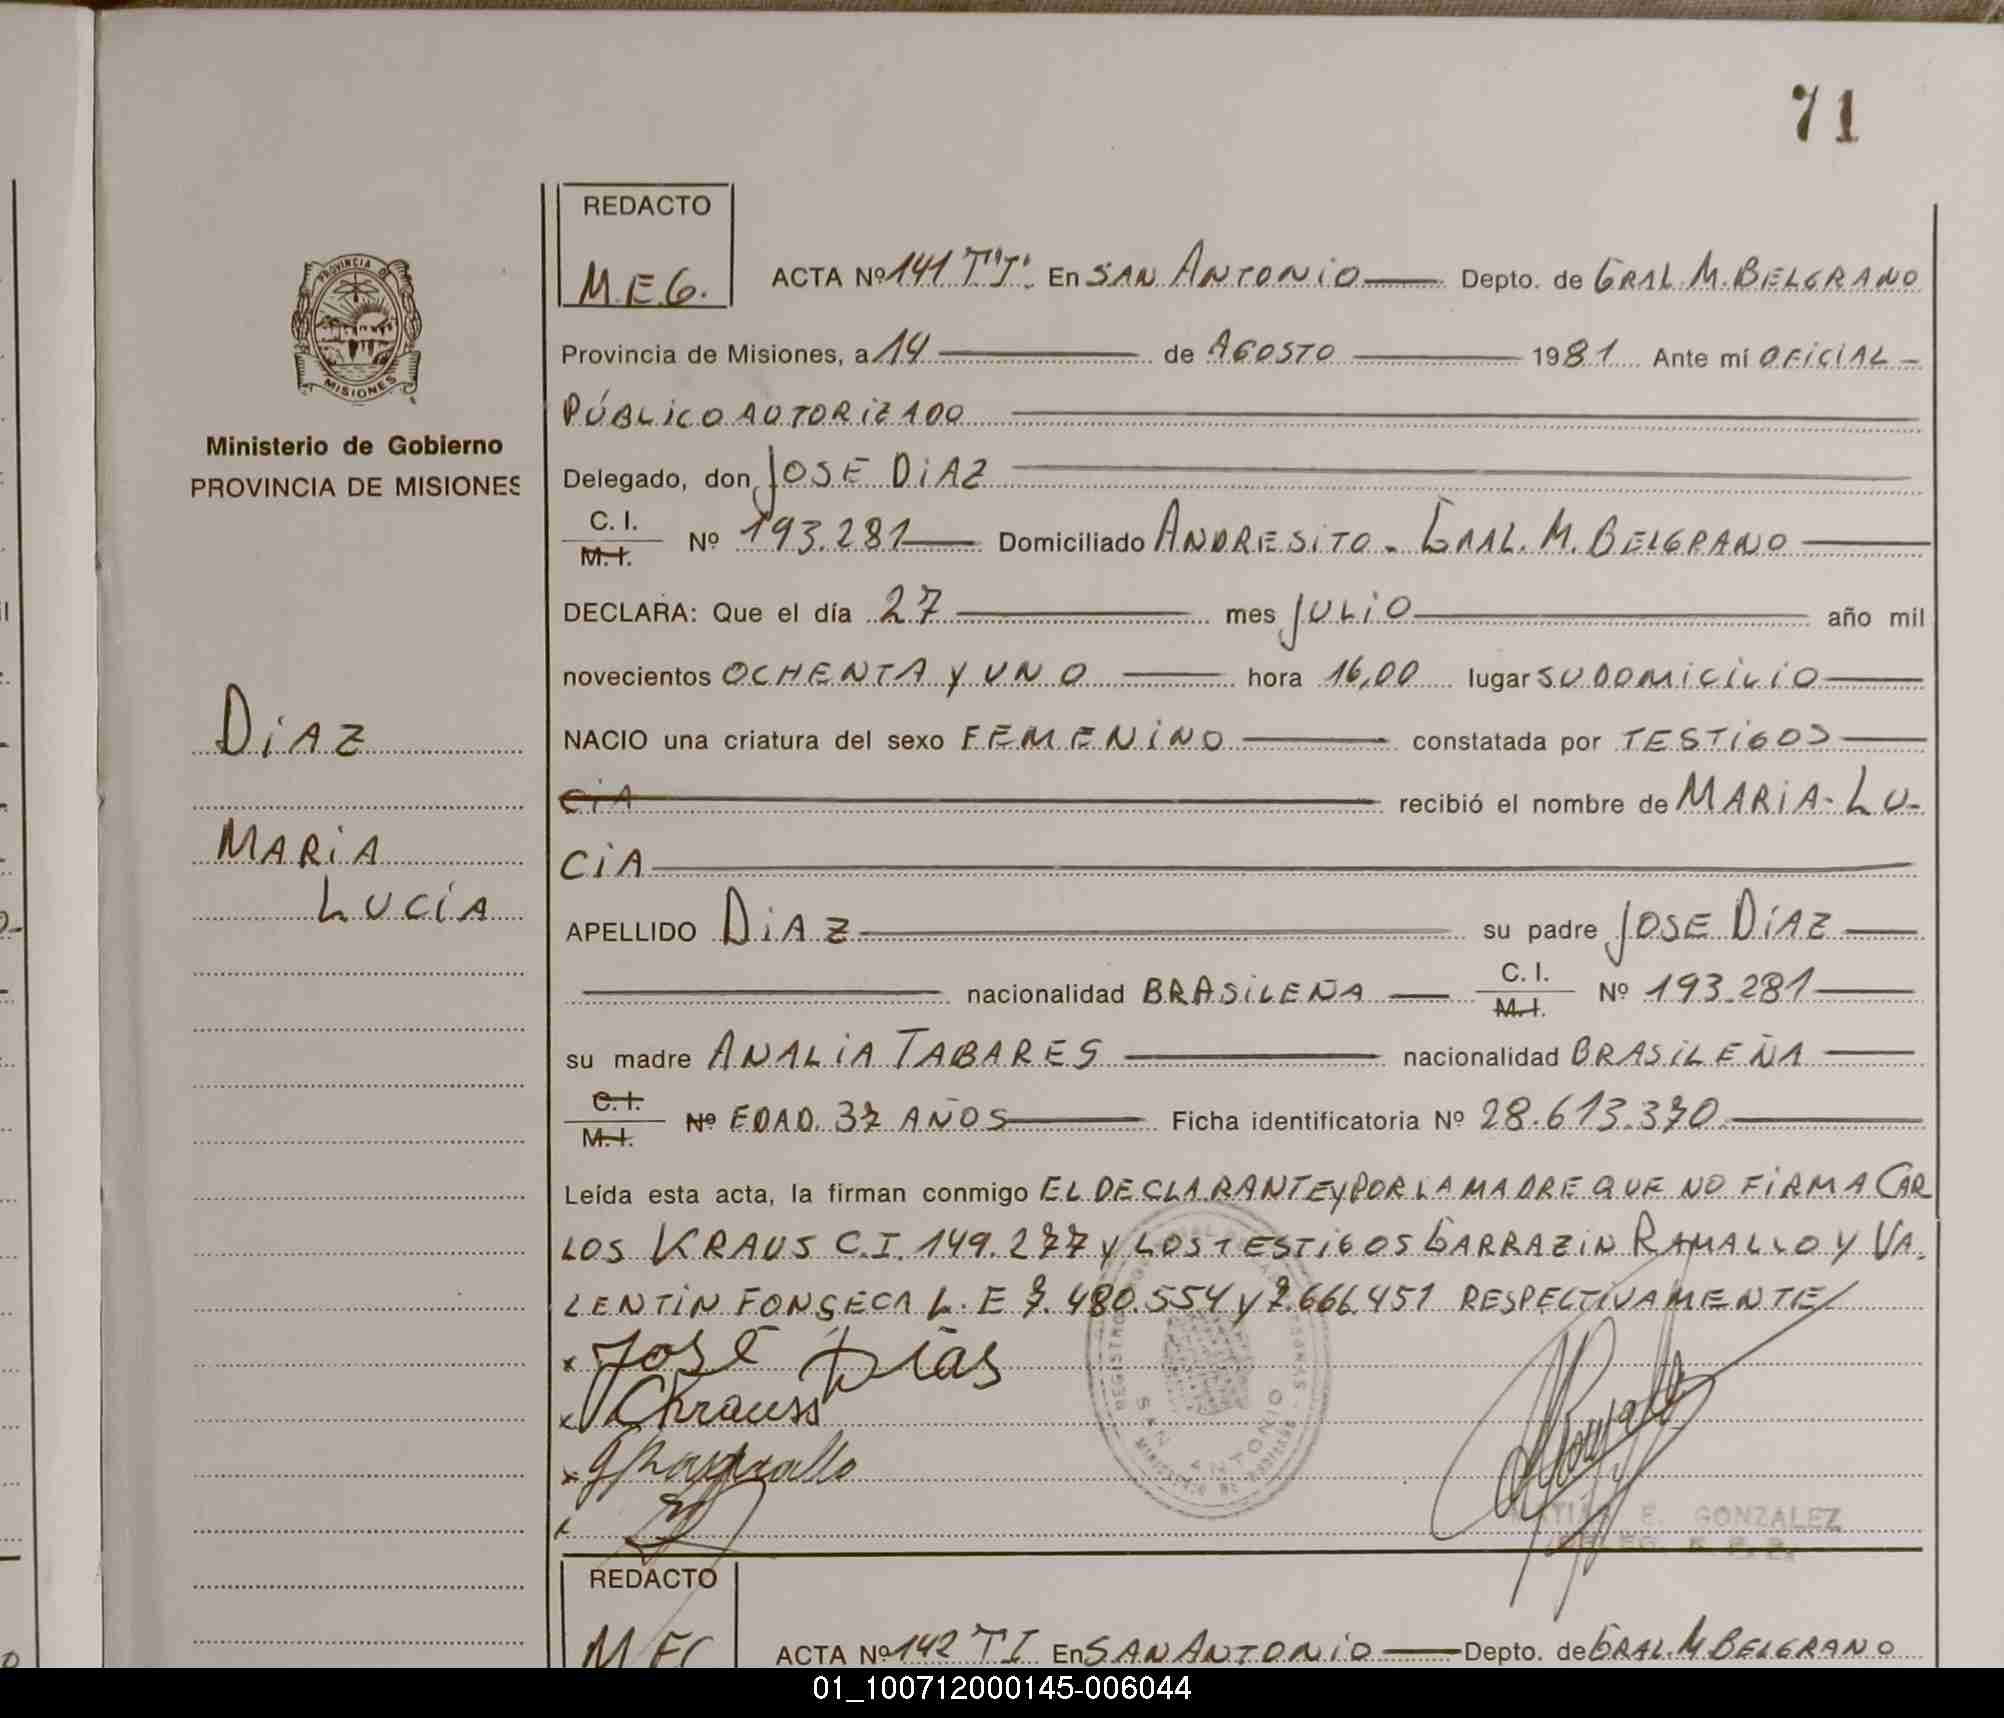 71
REDACTO
M.E.G.
ACTA Nº 141 T"I" En SAN ANTONIO Depto. de GRAL. M. BELGRANO
Provincia de Misiones, a 14 de AGOSTO 1981 Ante mí OFICIAL -
PÚBLICO AUTORIZADO
Delegado, don JOSE DIAZ
C. I.
M.I. Nº 193.281 Domiciliado ANDRESITO - GRAL. M. BELGRANO
DECLARA: Que el día 27 mes JULIO año mil
novecientos OCHENTA Y UNO hora 16,00 lugar SU DOMICILIO
NACIO una criatura del sexo FEMENINO constatada por TESTIGOS
CIA recibió el nombre de MARIA- LU-
CIA
APELLIDO DIAZ su padre JOSE DIAZ
nacionalidad BRASILEÑA C. I. M.I. Nº 193.281
su madre ANALIA TABARES nacionalidad BRASILEÑA
C.I. M.I. Nº EDAD 37 AÑOS Ficha identificatoria Nº 28.613.370
Leída esta acta, la firman conmigo EL DECLARANTE Y POR LA MADRE QUE NO FIRMA CAR
LOS KRAUS C.I. 149.277 Y LOS TESTIGOS GARRAZIN RAMALLO Y VA-
LENTIN FONSECA L.E 7.480.554 Y 7.666.451 RESPECTIVAMENTE
x José Dias
x Chrauss
x
x
SAN ANTONIO
E. GONZALEZ
PROVINCIA DE
MISIONES
Ministerio de Gobierno
PROVINCIA DE MISIONES
DIAZ
MARIA
LUCÍA
REDACTO
ACTA Nº 142 TI En SAN ANTONIO Depto. de GRAL. M. BELGRANO
01_100712000145-006044